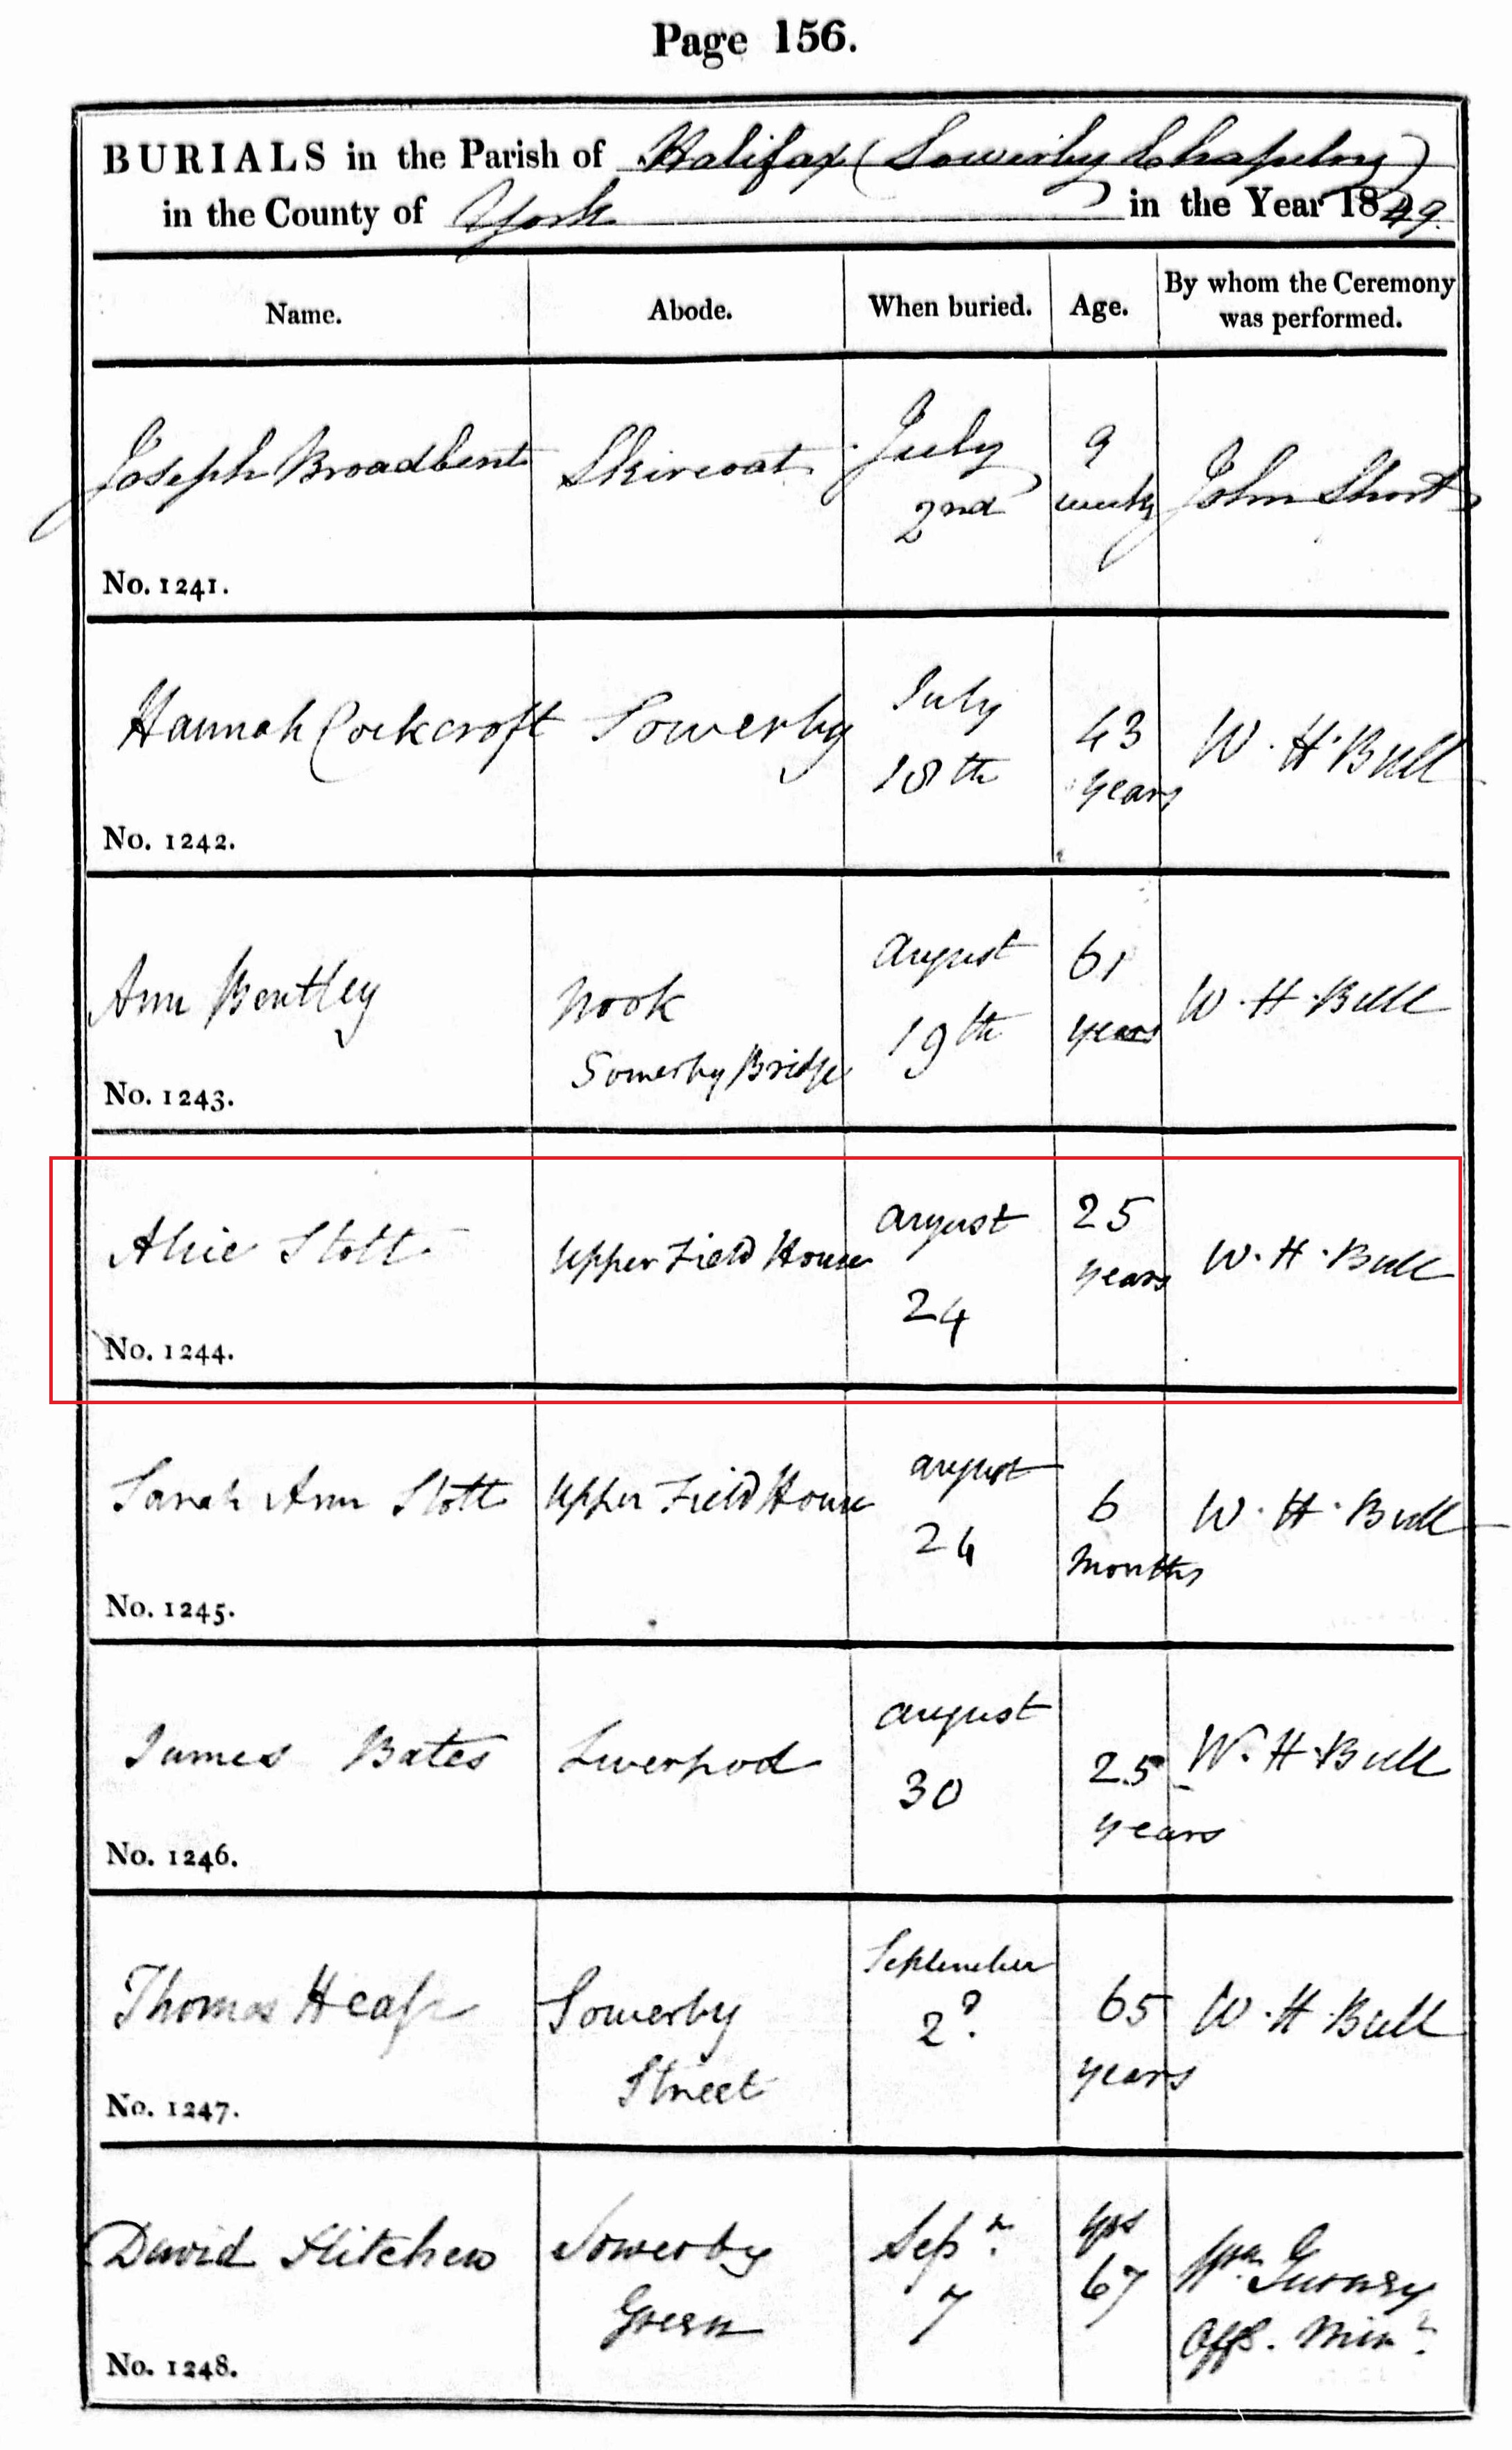 Page 156.
BURIALS in the Parish of Halifax (Sowerby Chapelry)
in the County of York in the Year 1849.
Name. Abode. When buried. Age. By whom the Ceremony was performed.
Joseph Broadbent Skircoat July 2nd 9 weeks John Short
No. 1241.
Hannah Cockcroft Sowerby July 18th 43 years W. H. Bull
No. 1242.
Ann Bentley Nook Sowerby Bridge August 19th 61 years W. H. Bull
No. 1243.
Alice Stott Upper Field House August 24 25 years W. H. Bull
No. 1244.
Sarah Ann Stott Upper Field House August 24 6 Months W. H. Bull
No. 1245.
James Bates Liverpool August 30 25 years W. H. Bull
No. 1246.
Thomas Heap Sowerby Street September 2? 65 years W. H. Bull
No. 1247.
David Hitchen Sowerby Green Sepr. 7 yrs 67 Wm. Gurney Offg. Minr.
No. 1248.